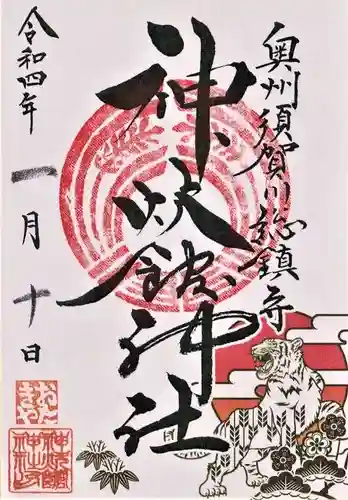 奥州須賀川総鎮守
神炊館神社
令和四年
一月十日